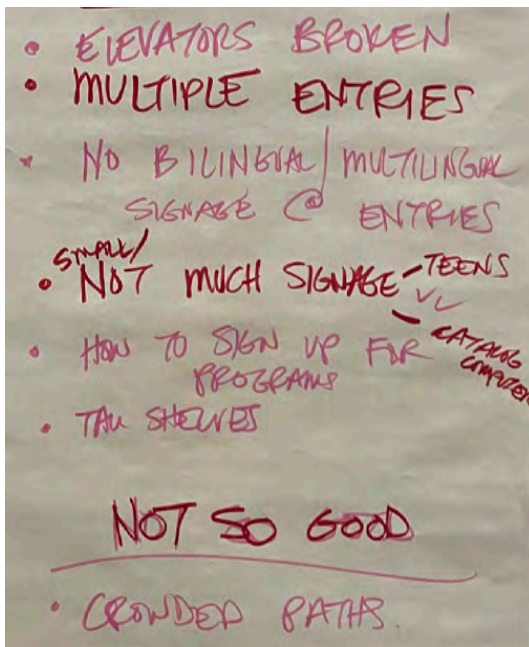 • ELEVATORS BROKEN
• MULTIPLE ENTRIES
• NO BILINGUAL/MULTILINGUAL
SIGNAGE @ ENTRIES
SMALL/
• NOT MUCH SIGNAGE - TEENS
- CATALOG
COMPUTER
• HOW TO SIGN UP FOR
PROGRAMS
• TALL SHELVES
NOT SO GOOD
• CROWDED PATHS.